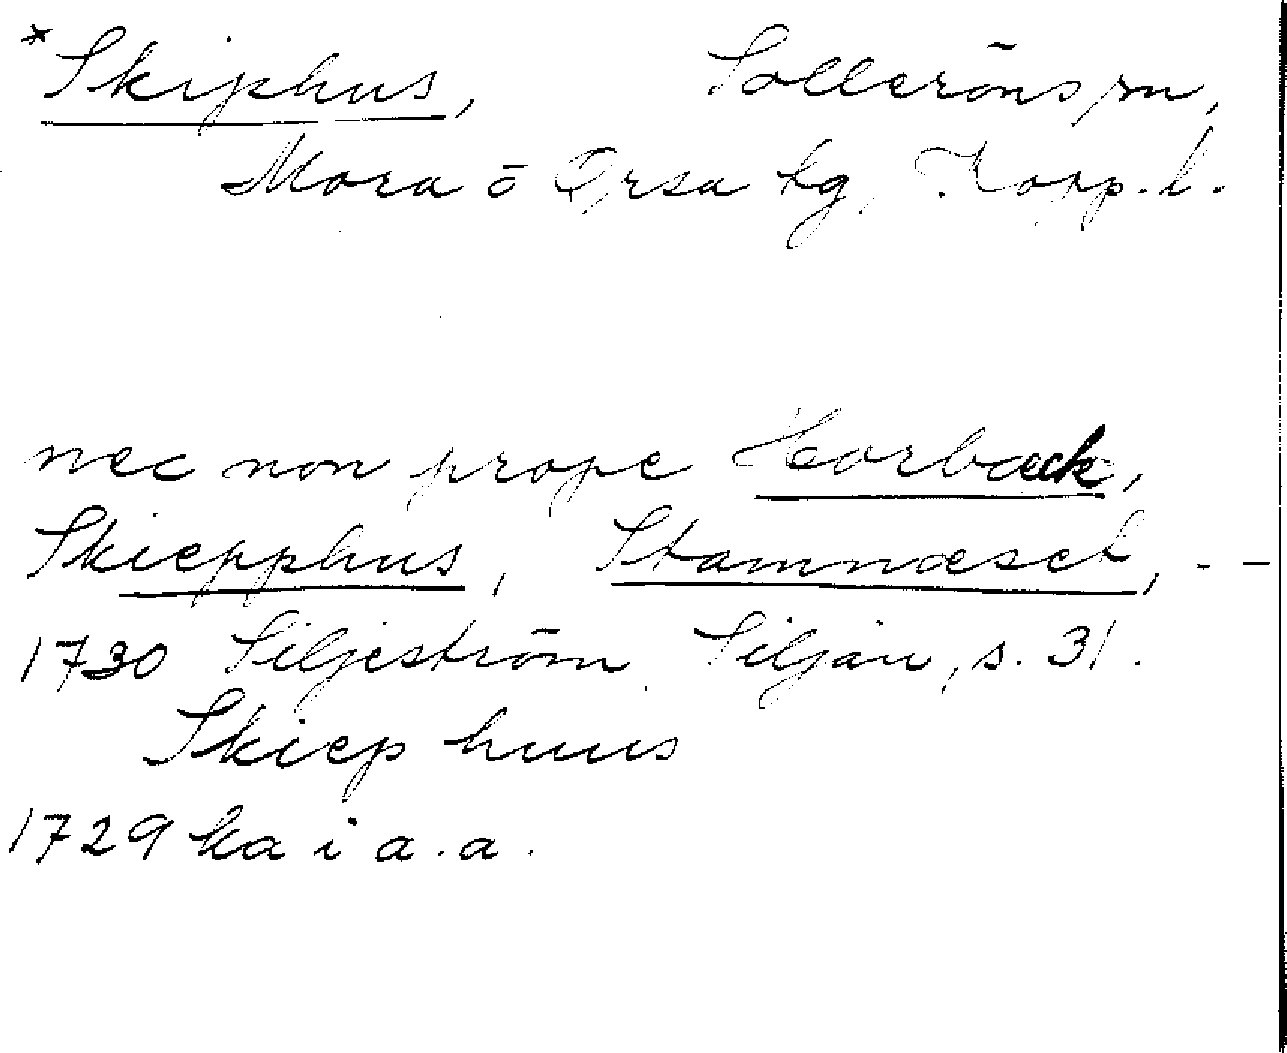 *Skiphus, Solleröns sn,
Mora o Orsa tg, Kopp. l.
nec non prope Horbæck,
Skiepphus, Stamnæset, - -
1730 Siljeström, Siljan, s. 31.
Skiep huus
1729 ka i a. a.